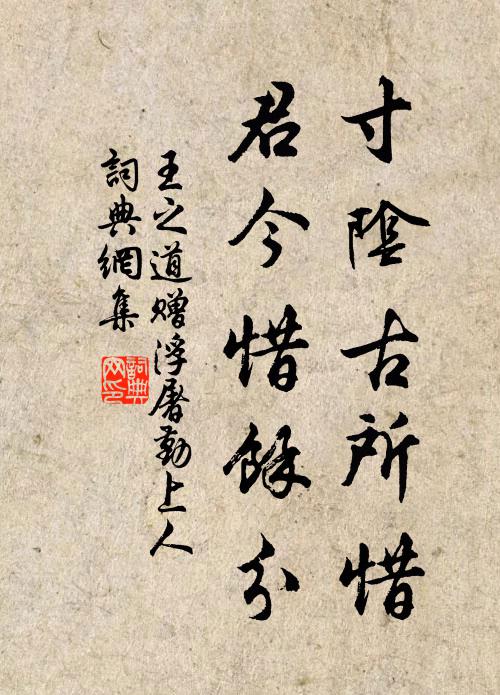 寸陰古所惜
君今惜餘分
王之道贈浮屠勤上人
詞典網集
詞典
網印